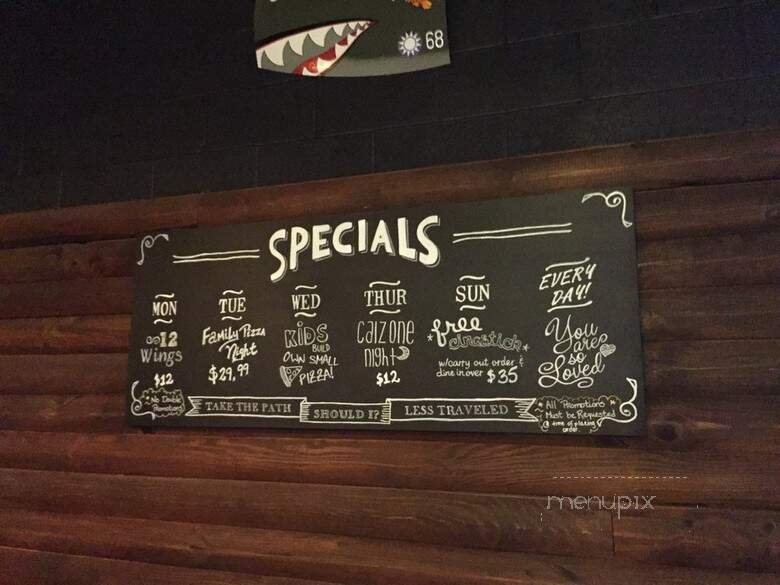 68
SPECIALS
MON
12
Wings
$12
TUE
Family Pizza
Night
$29.99
WED
KiDS
BUILD
OWN SMALL
PIZZA!
THUR
CALZONE
NIGHT
$12
SUN
free
cinastick
w/carry out order &
dine in over $35
EVERY
DAY!
You
are
so
Loved
No Double
Promotions
TAKE THE PATH
SHOULD I?
LESS TRAVELED
All Promotions
Must be Requested
@ time of placing
order.
menupix